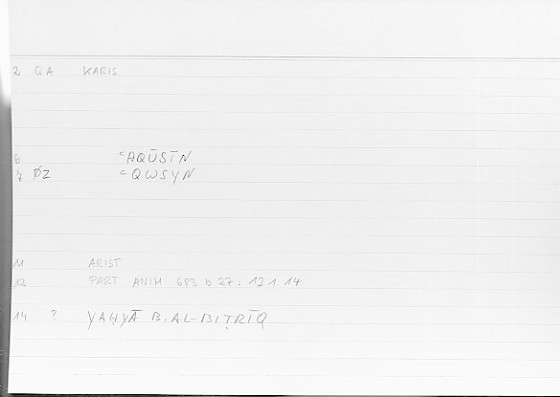 2 QA KARIS
6 ʿAQŪSĪN
7 ØZ ʿQWSYN
11 ARIST
12 PART ANIM 683 b 27 : 131.14
14 ? YAḤYĀ B. AL-BIṬRĪQ